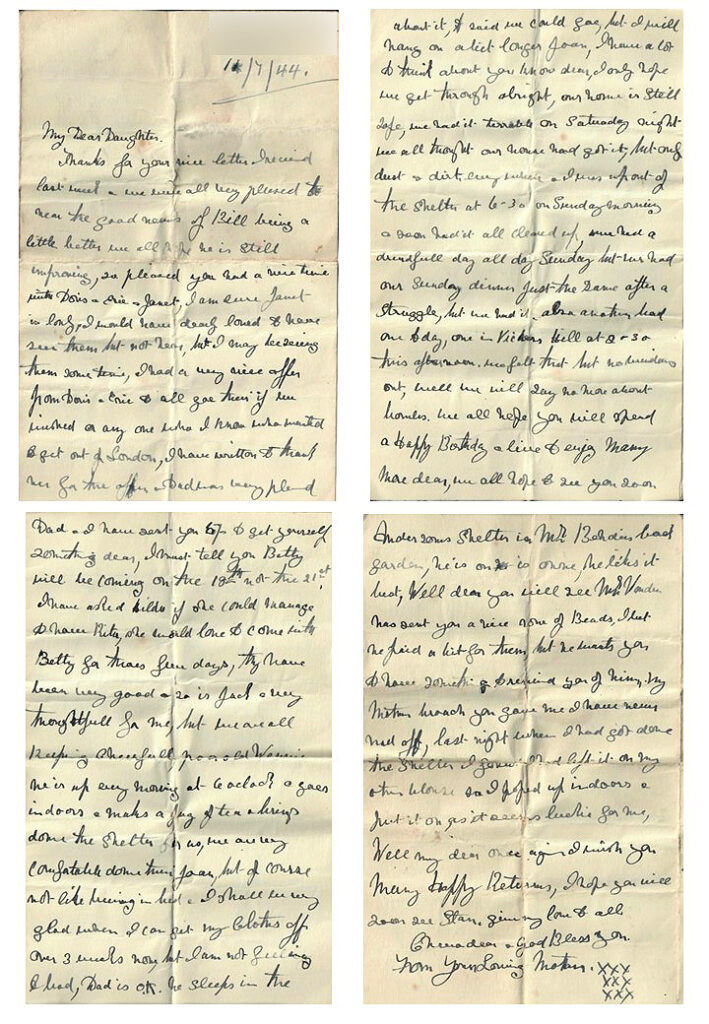 11/7/44.
My Dear Daughter.
Thanks for your nice letter I recieved
last week & we were all very pleased to
hear the good news of Bill being a
little better we all hope he is still
improving, so pleased you had a nice time
with Doris & Eric & Janet, I am sure Janet
is lovly, I would have dearly loved to have
seen them but not now, but I may be seeing
them some time, I had a very nice offer
from Doris & Eric to all goe then if we
wished or any one who I know who wanted
to get out of London, I have written to thank
her for the offer & Dad was very pleased
about it, & said we could goe, but I will
hang on a bit longer Joan, I have a lot
to think about you know dear, I only hope
we get through alright, our home is still
safe, we had it terrable on Saturday night
we all thought our house had got it, but only
dust & dirt every where & I was up out of
the shelter at 6-30 on Sunday morning
& soon had it all cleared up, we had a
dreadfull day all day Sunday but we had
our Sunday dinner just the same after a
struggle, but we had it. also another bad
one to day, one in Vickers Hill at 2-30
this afternoon. we felt that but no windows
out, well we will say no more about
bombs. we all hope you will spend
a Happy Birthday & live to enjoy Many
More dear, we all hope to see you soon
Dad & I have sent you to get yourself
something dear, I must tell you Betty
will be coming on the 18th not the 21st.
I have asked Hilda if she could manage
to have Rita, she would love to come with
Betty for those few days, they have
been very good & so is Jack & very
thoughtfull for me, but we are all
keeping cheerfull, poor old
he is up every morning at 6 oclock & goes
indoors & makes a jug of tea & brings
down the shelter for us, we are very
comfatable down there Joan, but of course
not like being in bed & I shall be very
glad when I can get my cloths off
over 3 weeks now, but I am not feeling
to bad, Dad is O.K. he sleeps in the
Andersons shelter in Mr back
garden, he is on his own, he likes it
best, Well dear you will see Mr
has sent you a nice rone of Beads, I bet
he paid a bit for them, but he wants you
to have something to remind you of him, my
Mothers broach you gave me I have never
had off, last night when I had got down
the shelter I found I had left it on my
other blouse so I poped up indoors &
put it on, as it seems luckie for me,
Well my dear once again I wish you
Many Happy Returns, I hope you will
soon see Stan, give my love to all.
Cheerio dear & God Bless You.
From Your Loving Mother. XXX
XXX
XXX